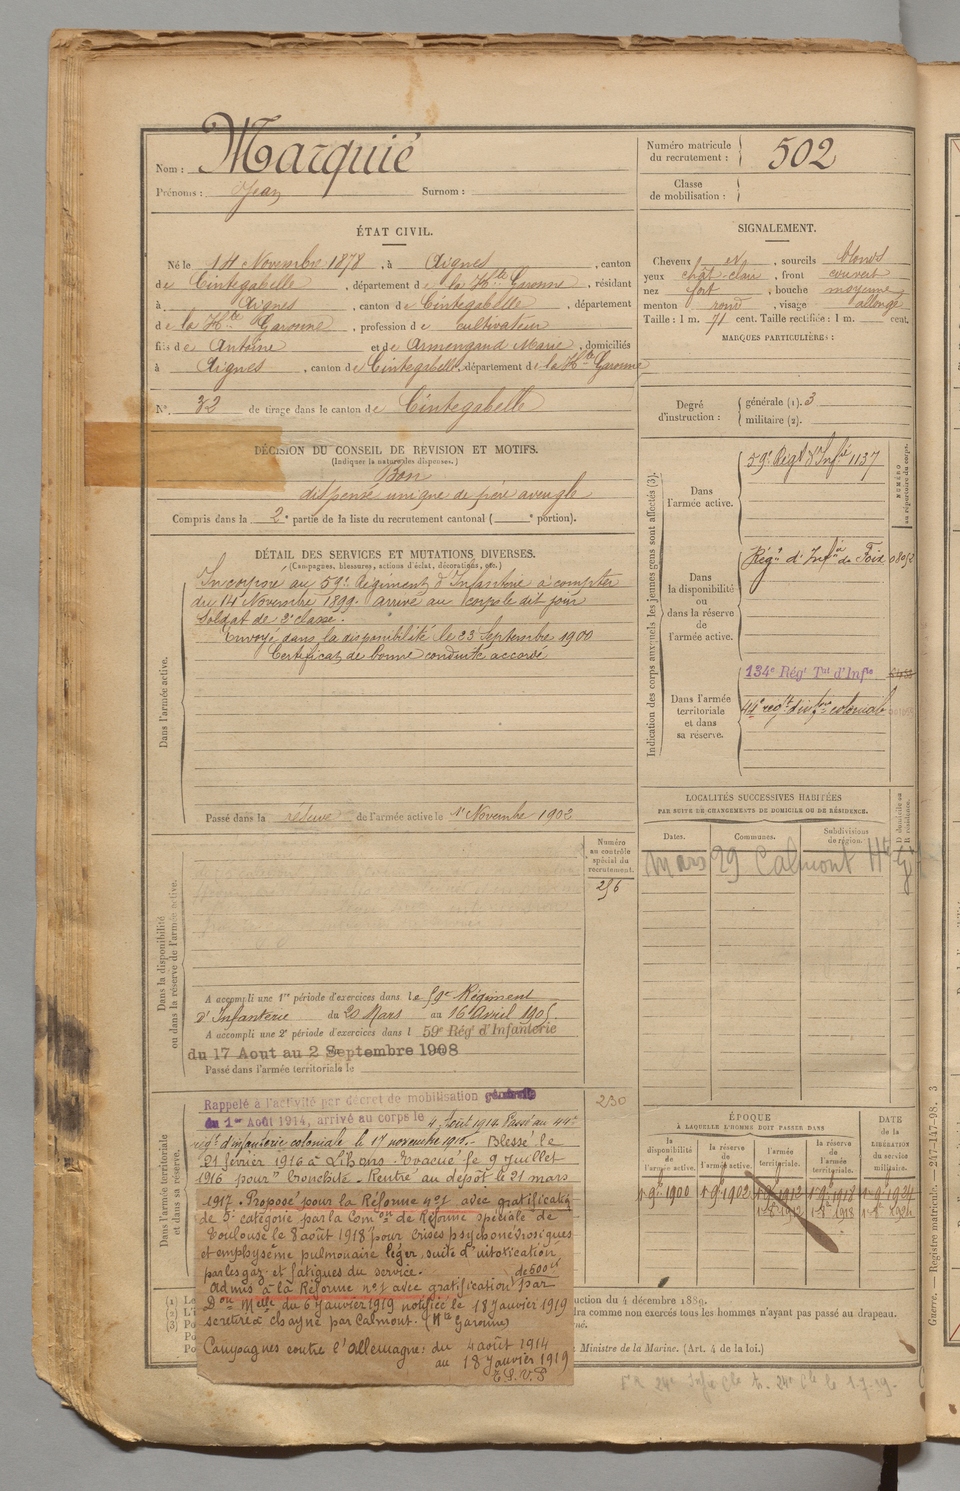 Nom : Marquié
Prénoms : Jean Surnom :
Numéro matricule du recrutement : 502
Classe de mobilisation :
ÉTAT CIVIL.
Né le 14 Novembre 1878, à Aignes, canton
de Cintegabelle, département de la Hte Garonne, résidant
à Aignes, canton de Cintegabelle, département
de la Hte Garonne, profession de cultivateur
fils de Antoine et de Armengaud Marie, domiciliés
à Aignes, canton de Cintegabelle, département de la Hte Garonne
N° 32 de tirage dans le canton de Cintegabelle
SIGNALEMENT.
Cheveux et, sourcils blonds
yeux chât-clair, front couvert
nez fort, bouche moyenne
menton rond, visage allongé
Taille : 1 m. 71 cent. Taille rectifiée : 1 m. cent.
MARQUES PARTICULIÈRES :
Degré d'instruction : générale (1). 3
militaire (2).
DÉCISION DU CONSEIL DE REVISION ET MOTIFS.
(Indiquer la nature des dispenses.)
Bon
dispensé unique de père aveugle
Compris dans la 2e partie de la liste du recrutement cantonal ( e portion).
DÉTAIL DES SERVICES ET MUTATIONS DIVERSES.
(Campagnes, blessures, actions d'éclat, décorations, etc.)
Dans l'armée active.
Incorporé au 59e Régiment d'Infanterie à compter
du 14 Novembre 1899. arrivé au corps le dit jour
Soldat de 2e classe.
Envoyé dans la disponibilité le 23 Septembre 1900
Certificat de bonne conduite accordé
Passé dans la réserve de l'armée active le 1er Novembre 1902
Indication des corps auxquels les jeunes gens sont affectés (3).
NUMÉRO au répertoire du corps.
Dans l'armée active.
59e Régt d'Infie 1137
Dans la disponibilité ou dans la réserve de l'armée active.
Régnt d'Infie de Foix
Dans l'armée territoriale et dans sa réserve.
134e Régt Tal d'Infie
44e regt d'infrie coloniale
LOCALITÉS SUCCESSIVES HABITÉES
PAR SUITE DE CHANGEMENTS DE DOMICILE OU DE RÉSIDENCE.
Dates. Communes. Subdivisions de région. D domicile ou R résidence.
Mars 29 Calmont Hte G
Dans la disponibilité ou dans la réserve de l'armée active.
Numéro au contrôle spécial du recrutement.
256
A accompli une 1re période d'exercices dans le 59e Régiment
d'Infanterie du 20 Mars au 16 Avril 1905
A accompli une 2e période d'exercices dans l 59e Rég d'Infanterie
du 17 Aout au 2 Septembre 1908
Passé dans l'armée territoriale le
Dans l'armée territoriale et dans sa réserve.
230
Rappelé à l'activité par décret de mobilisation générale
du 1er Août 1914, arrivé au corps le 4 août 1914 Passé au 44e
regt d'infanterie coloniale le 17 novembre
Blessé le
21 février 1916 à Lihons. Evacué le 9 juillet
1916 pour "bronchite". Rentré au dépôt le 21 mars
1917. Proposé pour la Réforme n°1 avec gratification
de 5e catégorie par la Comon de Réforme spéciale de
Toulouse le 8 août 1918 pour crises psychonévrosiques
et emphysème pulmonaire léger, suite d'intoxication
par les gaz et fatigues du service.
Admis à la Réforme n°1 avec gratification de 600 f par
Don Melle du 6 janvier 1919 notifiée le 18 janvier 1919
se retire à chayné par Calmont. (Hte Garonne)
Campagnes contre l'Allemagne : du 4 août 1914
au 18 janvier 1919
ÉPOQUE
À LAQUELLE L'HOMME DOIT PASSER DANS
la disponibilité de l'armée active. la réserve de l'armée active. l'armée territoriale. la réserve de l'armée territoriale.
DATE de la LIBÉRATION DU SERVICE militaire.
1er 9bre 1900 1er 9bre 1902 1er 9bre 1912 1er 9bre 1918 1er 9bre 1924
uction du 4 décembre 1889.
dra comme non exercés tous les hommes n'ayant pas passé au drapeau.
Ministre de la Marine. (Art. 4 de la loi.)
Guerre. — Registre matricule. — 247-147-98. 3